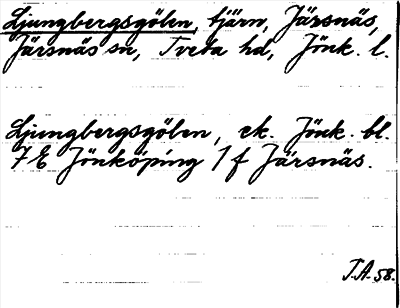 Ljungbergsgölen, tjärn, Järsnäs,
Järsnäs sn, Tveta hd, Jönk. l.
Ljungbergsgölen, ek. Jönk. bl.
7 E Jönköping 1 f Järsnäs.
T.A. 58.